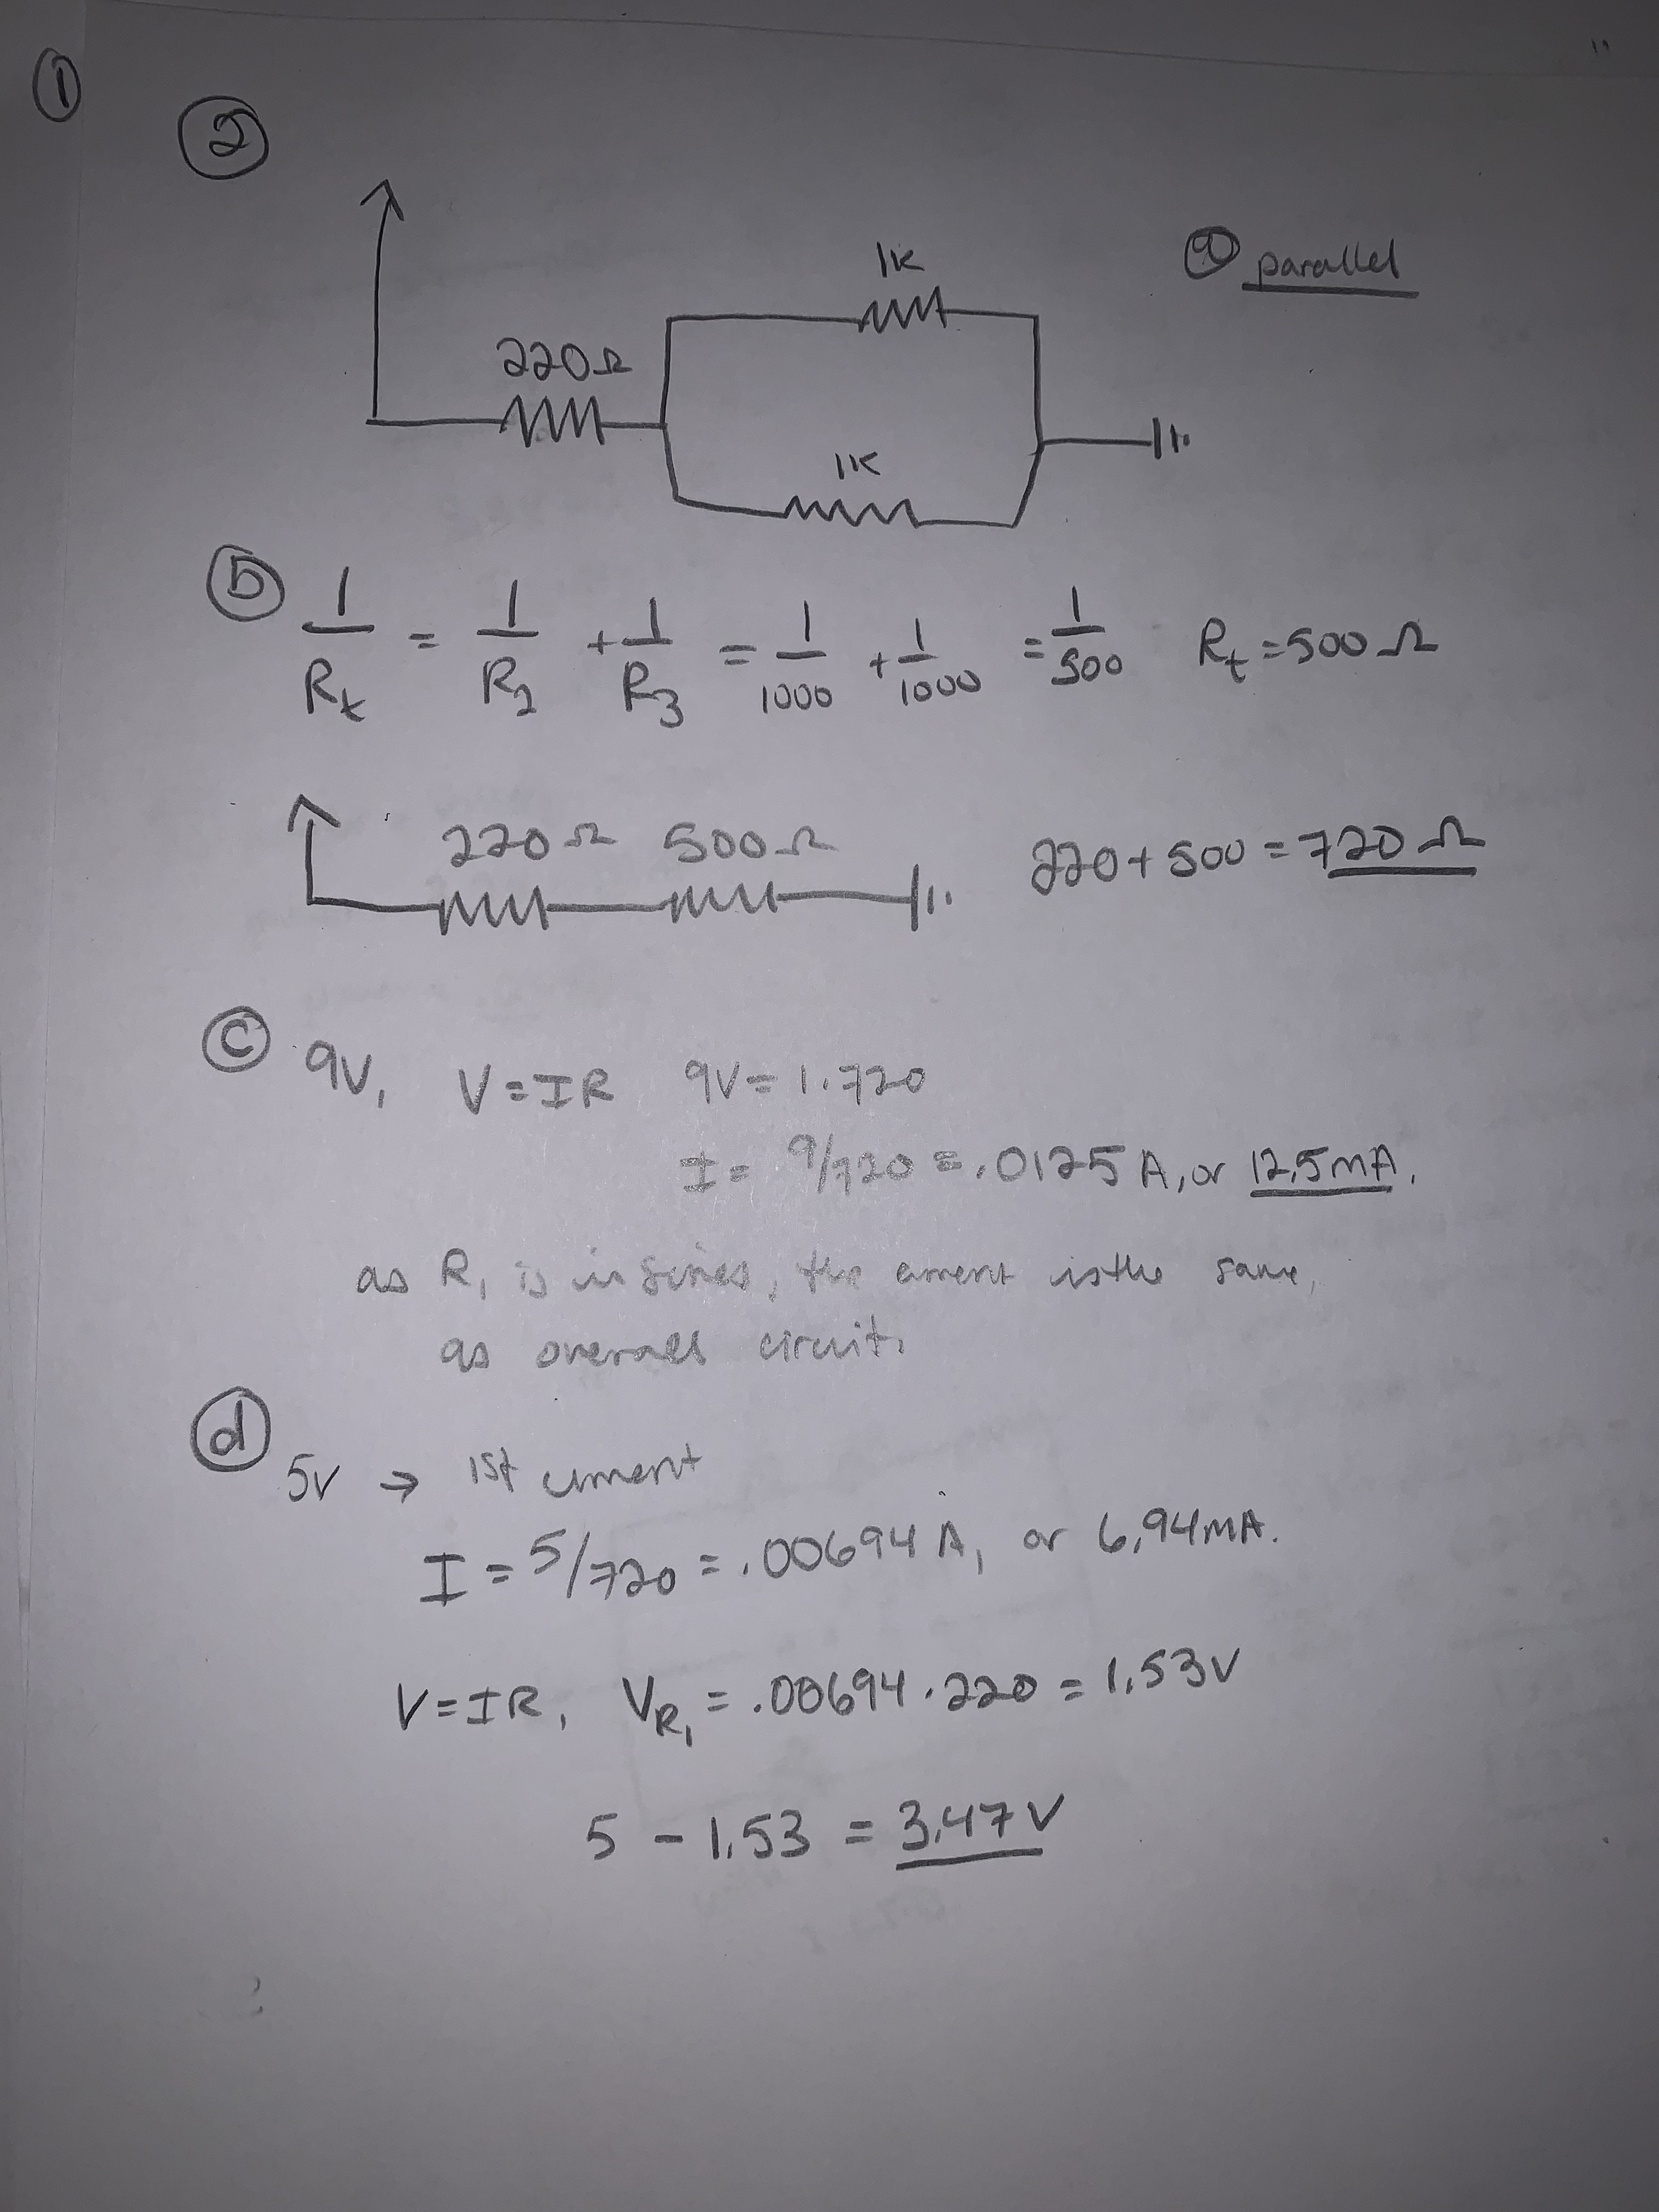 ①
②
1K
ⓐ parallel
220Ω
1K
ⓑ 1/Rt = 1/R2 + 1/R3 = 1/1000 + 1/1000 = 1/500 Rt = 500Ω
220Ω 500Ω 220 + 500 = 720Ω
ⓒ 9V, V = IR 9V = I·720
I = 9/720 = .0125 A, or 12.5mA.
as R1 is in series, the current is the same,
as overall circuit.
ⓓ
5V → 1st current
I = 5/720 = .00694 A, or 6.94mA.
V = IR, VR1 = .00694 · 220 = 1.53V
5 - 1.53 = 3.47V